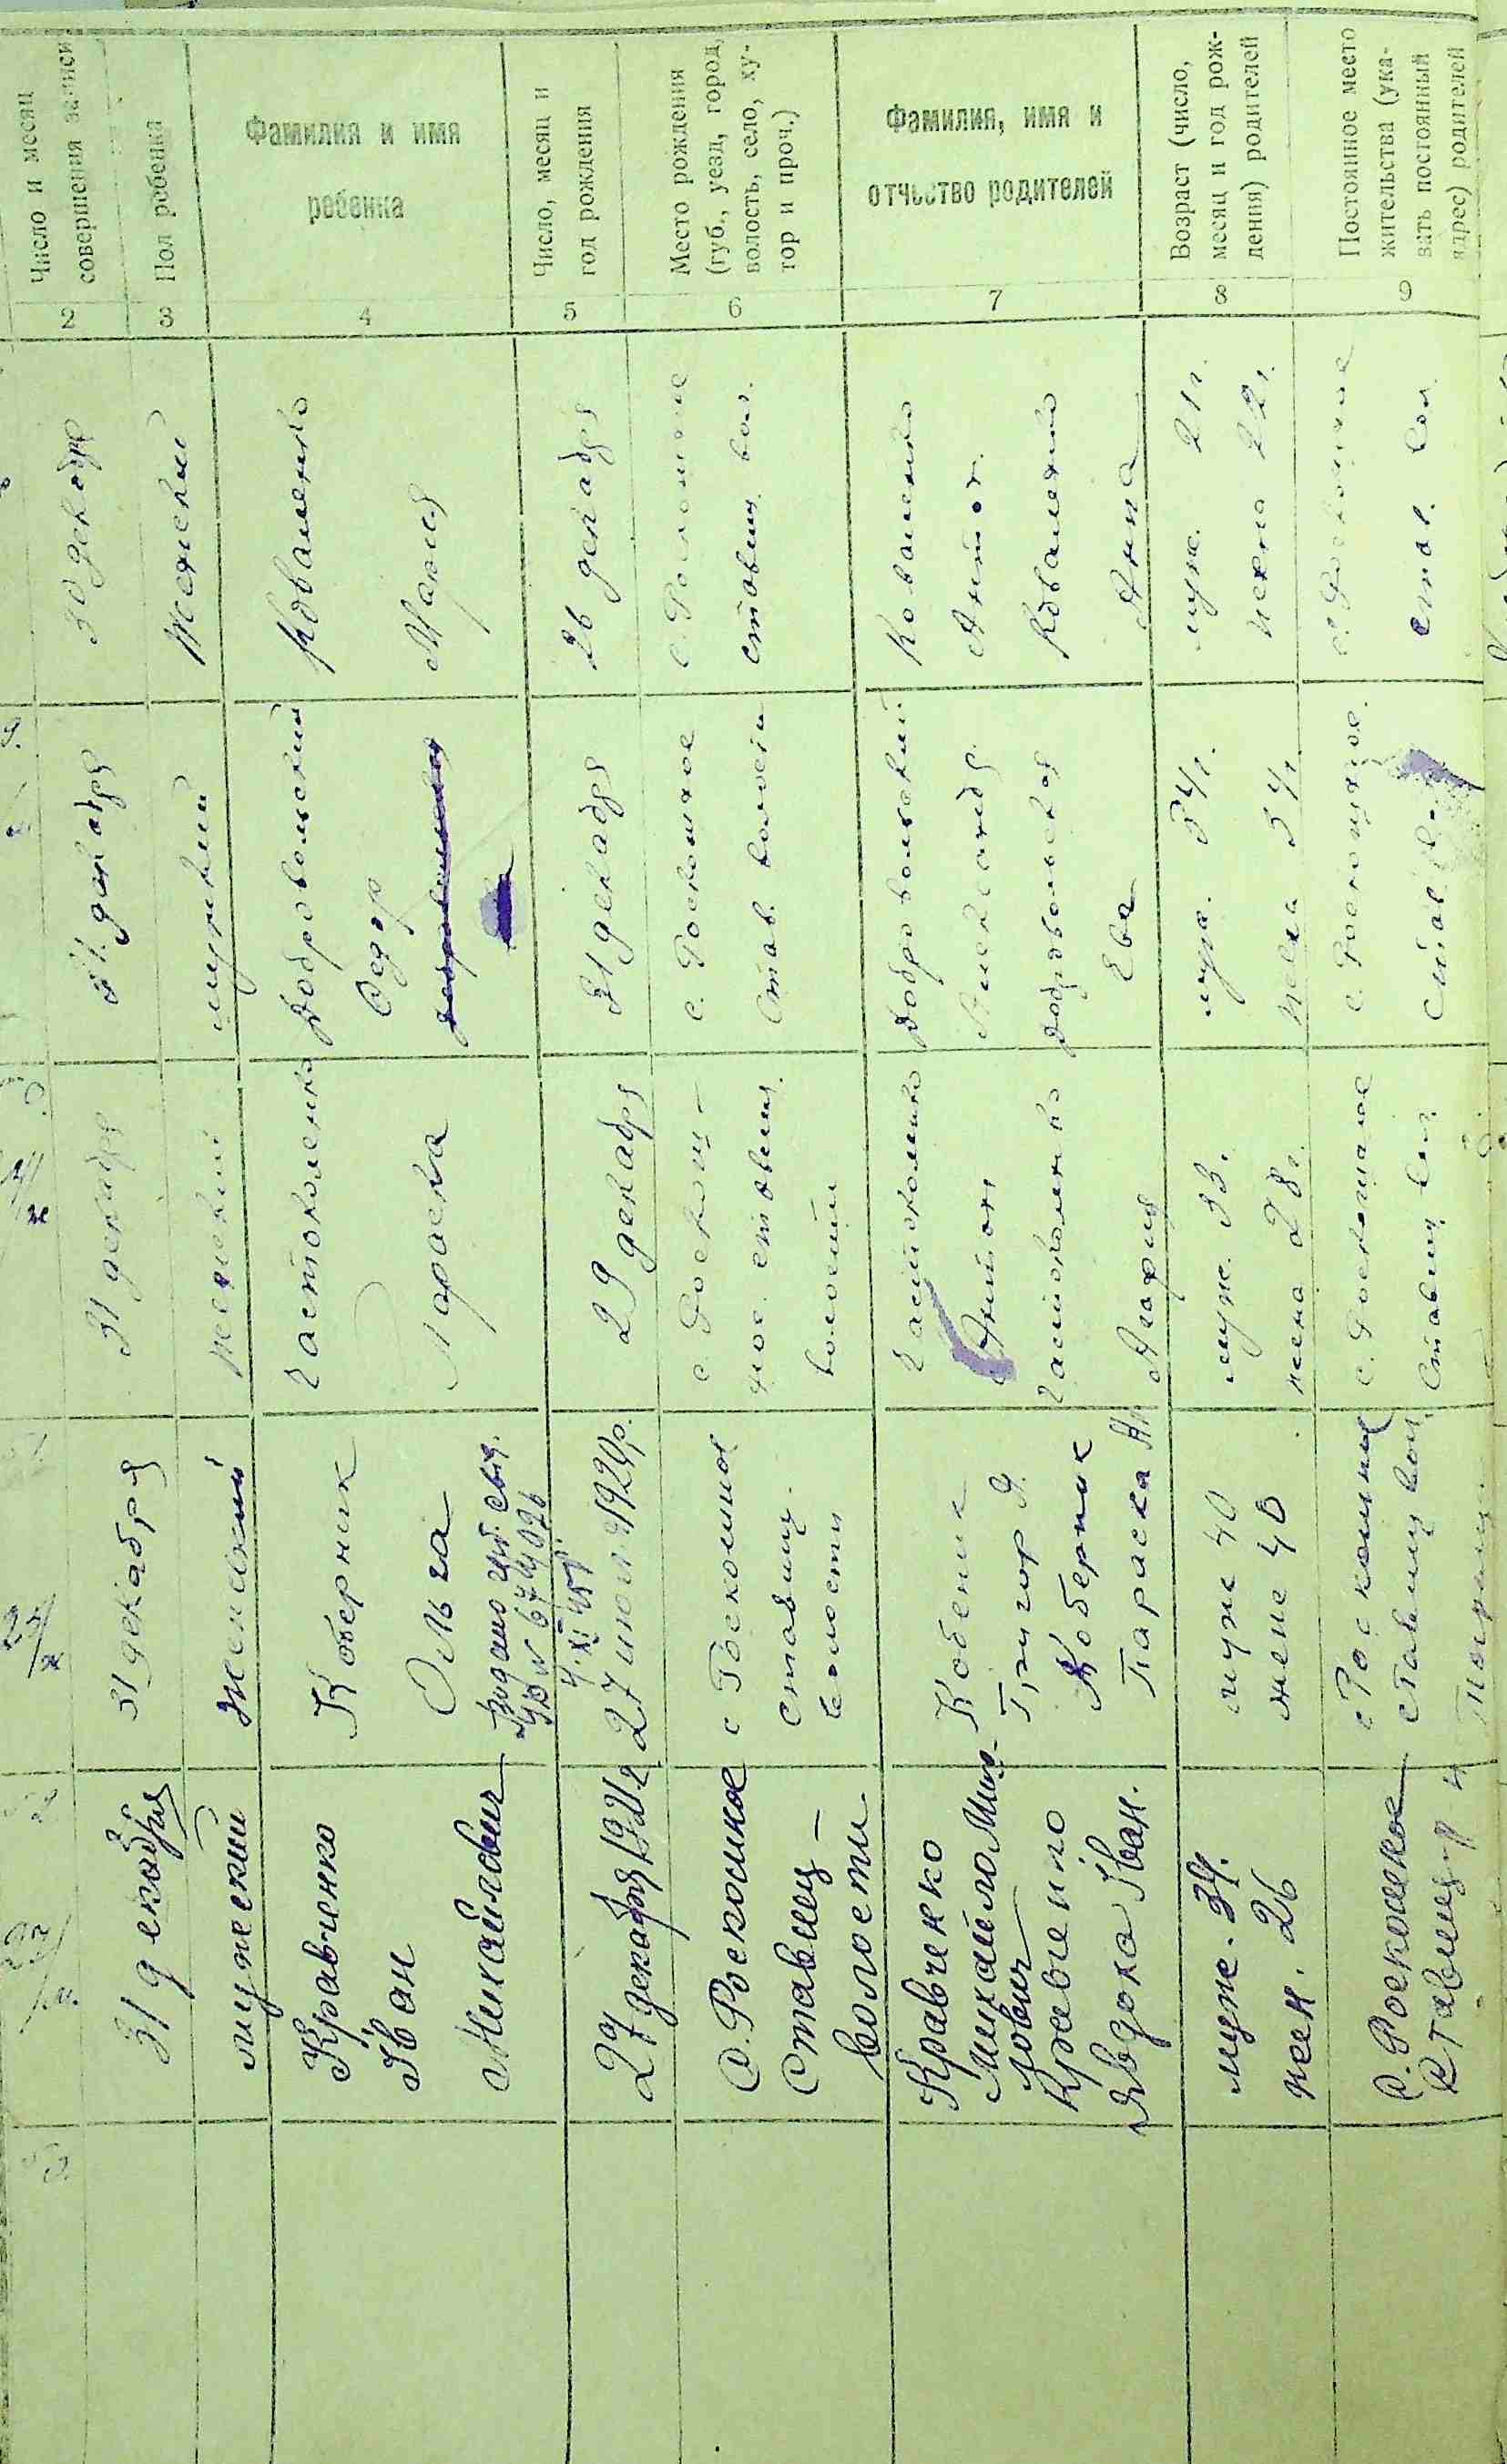 Число и месяц
совершения записи
Пол ребенка
Фамилия и имя
ребенка
Число, месяц и
год рождения
Место рождения
(губ., уезд, город,
волость, село, ху-
тор и проч.)
Фамилия, имя и
отчество родителей
Возраст (число,
месяц и год рож-
дения) родителей
Постоянное место
жительства (ука-
зать постоянный
адрес) родителей
2
3
4
5
6
7
8
9
30 декабря
Женский
Коваленко
Мария
26 декабря
с. Роскошное
ставищ. вол.
Коваленко
Антон
Коваленко
Анна
муж. 21 г.
жена 22 г.
с. Роскошное
став. вол
31 декабря
мужский
Добровольский
Федор
31 декабря
с. Роскошное
Став. волости
Добровольский
Александр
Добровольская
Ева
муж. 34 г.
жена 34 г.
с. Роскошное.
став.
31 декабря
женский
Частоколенко
Параска
29 декабря
с. Роскош-
ное ставищ.
волости
Частоколенко
Антон
Частоколенко
Агафия
муж. 33.
жена 28 г.
с. Роскошное
Ставищ вол
31 декабря
Женский
Коберник
Ольга
Видано
№ 674026
27 июля 1920р.
с Роскошное
Ставищ.
волости
Григор
Коберник
Параска
муже 40
жене 40
с Роскошная
ставищ вол.
31 декабря
мужеский
Кравченко
Іван
Михайлович
27 декабря 1921г
с. Роскошное
Ставищ-
волости
Кравченко
Михайло
Кравченко
Явдока Іван.
муж. 34.
жен. 26
с. Роскошное
Ставищ